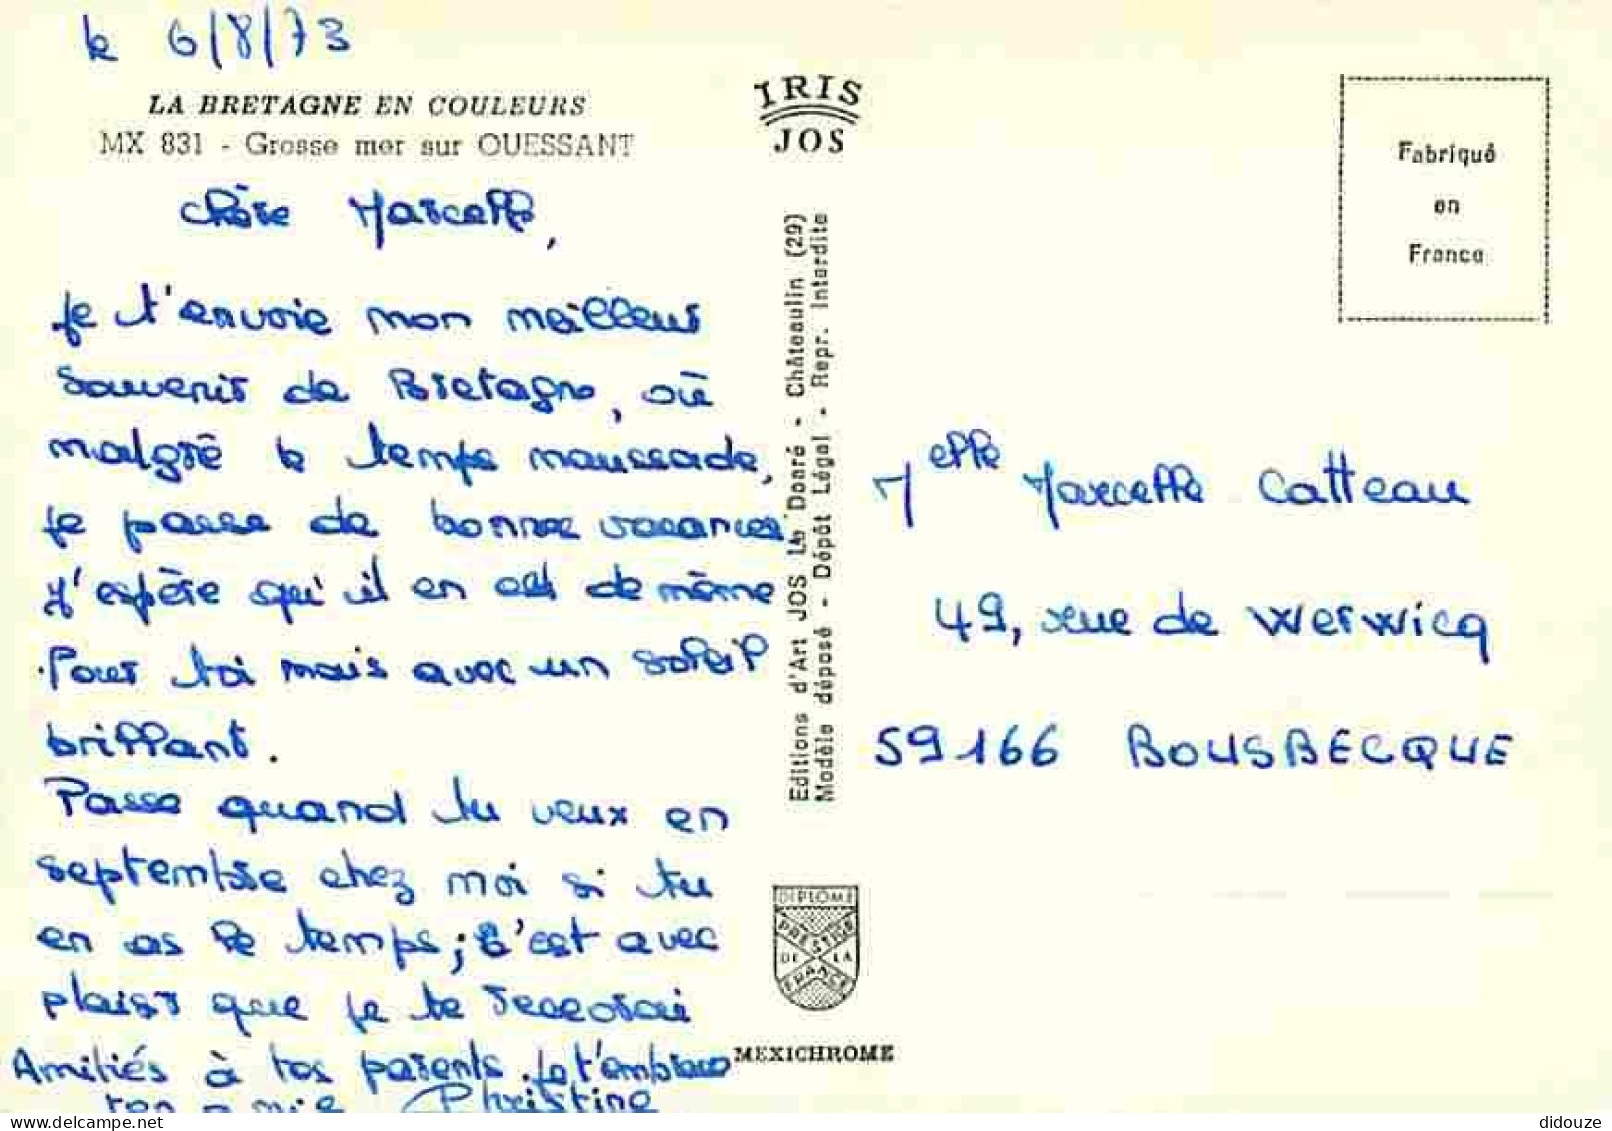 le 6/8/73
LA BRETAGNE EN COULEURS
MX 831 - Grosse mer sur OUESSANT
Chère Marcelle,
Je t'envoie mon meilleur
souvenir de Bretagne, où
malgré le temps maussade,
je passe de bonnes vacances
J'espère qu'il en est de même
Pour toi mais avec un soleil
brillant.
Passe quand tu veux en
septembre chez moi si tu
en as le temps; c'est avec
plaisir que je te recevrai
Amitiés à tes parents. Je t'embrasse
ton amie Christine
IRIS
JOS
Editions d'Art JOS Le Doaré - Châteaulin (29)
Modèle déposé - Dépôt Légal - Repr. Interdite
DIPLOME
PRESTIGE
DE LA
FRANCE
MEXICHROME
Fabriqué
en
France
Melle Marcelle Catteau
49, rue de Werwicq
59166 BOUSBECQUE
didouze